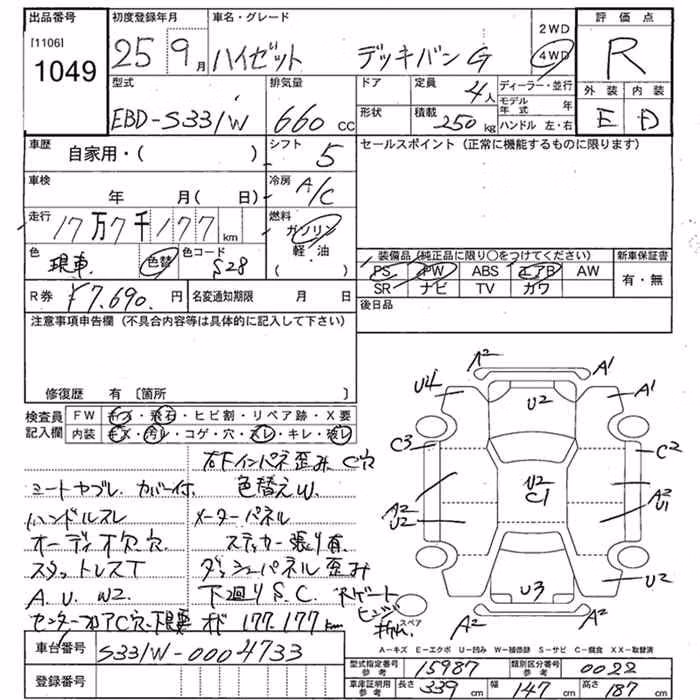 出品番号 初度登録年月 車名・グレード 2WD 評価点
[1106] 1049 25 9月 ハイゼット デッキバンG 4WD R
型式 排気量 ドア 定員 4人 ディーラー・並行 外装 内装
モデル年式 年
EBD-S331W 660 cc 形状 積載 250kg ハンドル 左・右 E D
車歴 自家用・( ) シフト 5 セールスポイント(正常に機能するものに限ります)
車検 年 月( 日) 冷房 A/C
走行 17万7千177km 燃料 ガソリン 軽・油
色 色替 色コード S28 装備品(純正品に限り○をつけてください) 新車保証書
PS PW ABS エアB AW 有・無
SR ナビ TV カワ
R券 ¥7.690. 円 名変通知期限 月 日 後日品
注意事項申告欄(不具合内容等は具体的に記入して下さい)
修復歴 有〔箇所 〕
検査員記入欄 FW キズ・飛石・ヒビ割・リペア跡・X要
内装 キズ・汚レ・コゲ・穴・スレ・キレ・破レ
右下インパネ歪み C穴
シートヤブレ. カバー付. 色替えW.
ハンドルスレ メーターパネル
オーディオ欠.穴. ステッカー張り有
スタットレスT ダッシュパネル歪み
A.U.W2. 下廻りS.C. Rゲート
177.177km
A2 A1
U4 U2 A1
C3 C2
U2 C1
A2 U2 A2 U1
U3 U2
スペア A2 A2
A-キズ E-エクボ U-凹み W-補修跡 S-サビ C-腐食 XX-取替済
車台番号 S331W-0004733
型式指定番号 参考 15987 類別区分番号 参考 0022
登録番号 車庫証明用 参考 長さ 339cm 幅 147cm 高さ 187cm